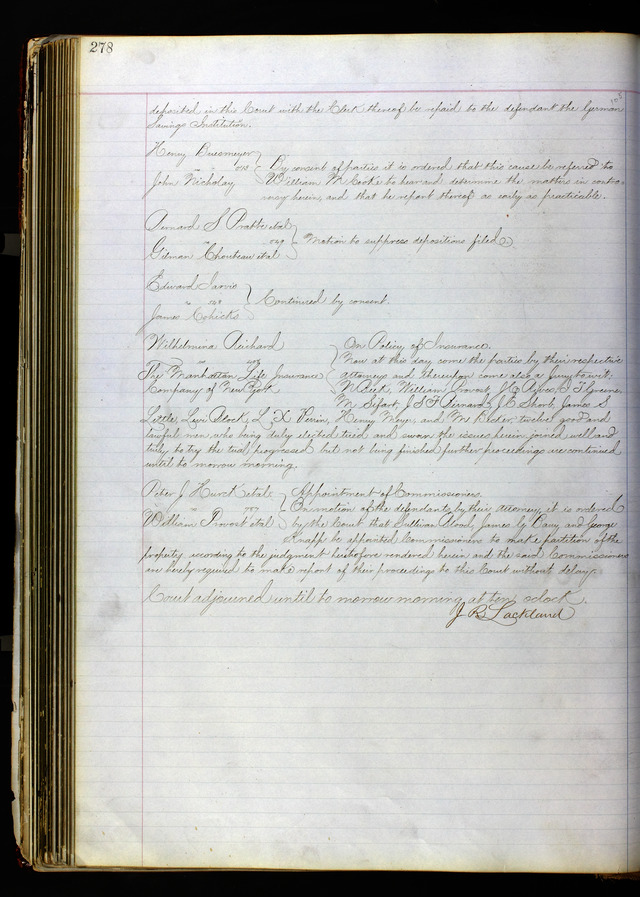 278
deposited in this Court with the Clerk thereof be repaid to the defendant the German
Savings Institution.
Henry Buesmeyer
vs By consent of parties it is ordered that this cause be referred to
John Nicholay William M Cooke to hear and determine the matters in contro-
versy herein, and that he report thereof as early as practicable.
Bernard S Pratte et al
vs Motion to suppress depositions filed
Gilman Chouteau et al
Edward Jarvis
vs Continued by consent.
James
Wilhelmina Reichard On Policy of Insurance.
vs Now at this day come the parties by their respective
The Manhattan Life Insurance attorneys and thereupon come also a jury to wit:
Company of New York William Provost, J C Ayres, Greene,
M Sifart, J S F Arnard, J C Storb, James S
Little, Levi Block, L X Henry Meyer, and M Becker, twelve good and
lawful men, who being duly elected tried and sworn the issues herein joined well and
truly to try the trial progressed but not being finished further proceedings are continued
until to morrow morning.
Peter J Hurck et al Appointment of Commissioners.
vs On motion of the defendants by their attorney, it is ordered
William Provost et al by the Court that Sullivan Blood, James and George
Knapp be appointed Commissioners to make partition of the
property according to the judgment heretofore rendered herein and the said Commissioners
are hereby required to make report of their proceedings to this Court without delay.
Court adjourned until to morrow morning at ten oclock.
J R Lackland